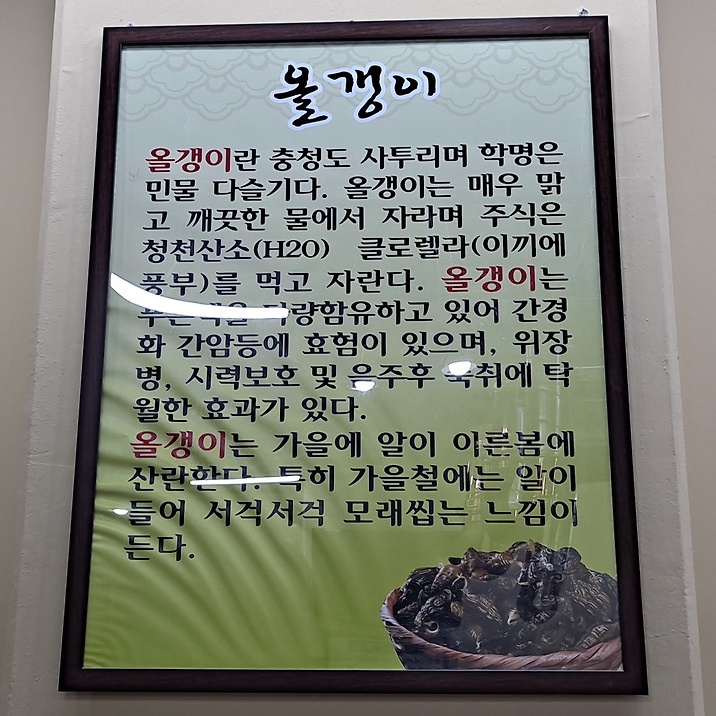 올갱이
올갱이란 충청도 사투리며 학명은
민물 다슬기다. 올갱이는 매우 맑
고 깨끗한 물에서 자라며 주식은
청천산소(H2O) 클로렐라(이끼에
풍부)를 먹고 자란다. 올갱이는
푸른색을 다량함유하고 있어 간경
화 간암등에 효험이 있으며, 위장
병, 시력보호 및 음주후 숙취에 탁
월한 효과가 있다.
올갱이는 가을에 알이 이른봄에
산란한다. 특히 가을철에는 알이
들어 서걱서걱 모래씹는 느낌이
든다.